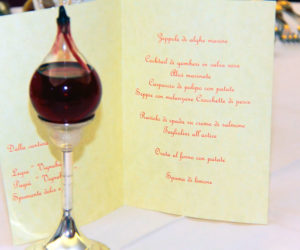 Zeppole di alghe marine
Cocktail di gamberi in salsa rosa
Alici marinate
Carpaccio di polipo con patate
Seppie con melanzane Crocchette di pesce
Ravioli di spada su crema di salmone
Taglioline all'astice
Orata al forno con patate
Spuma di limone
Dalla cantina
Lupa - Vignaba
Pupà - Vigna
Spumante dolce e